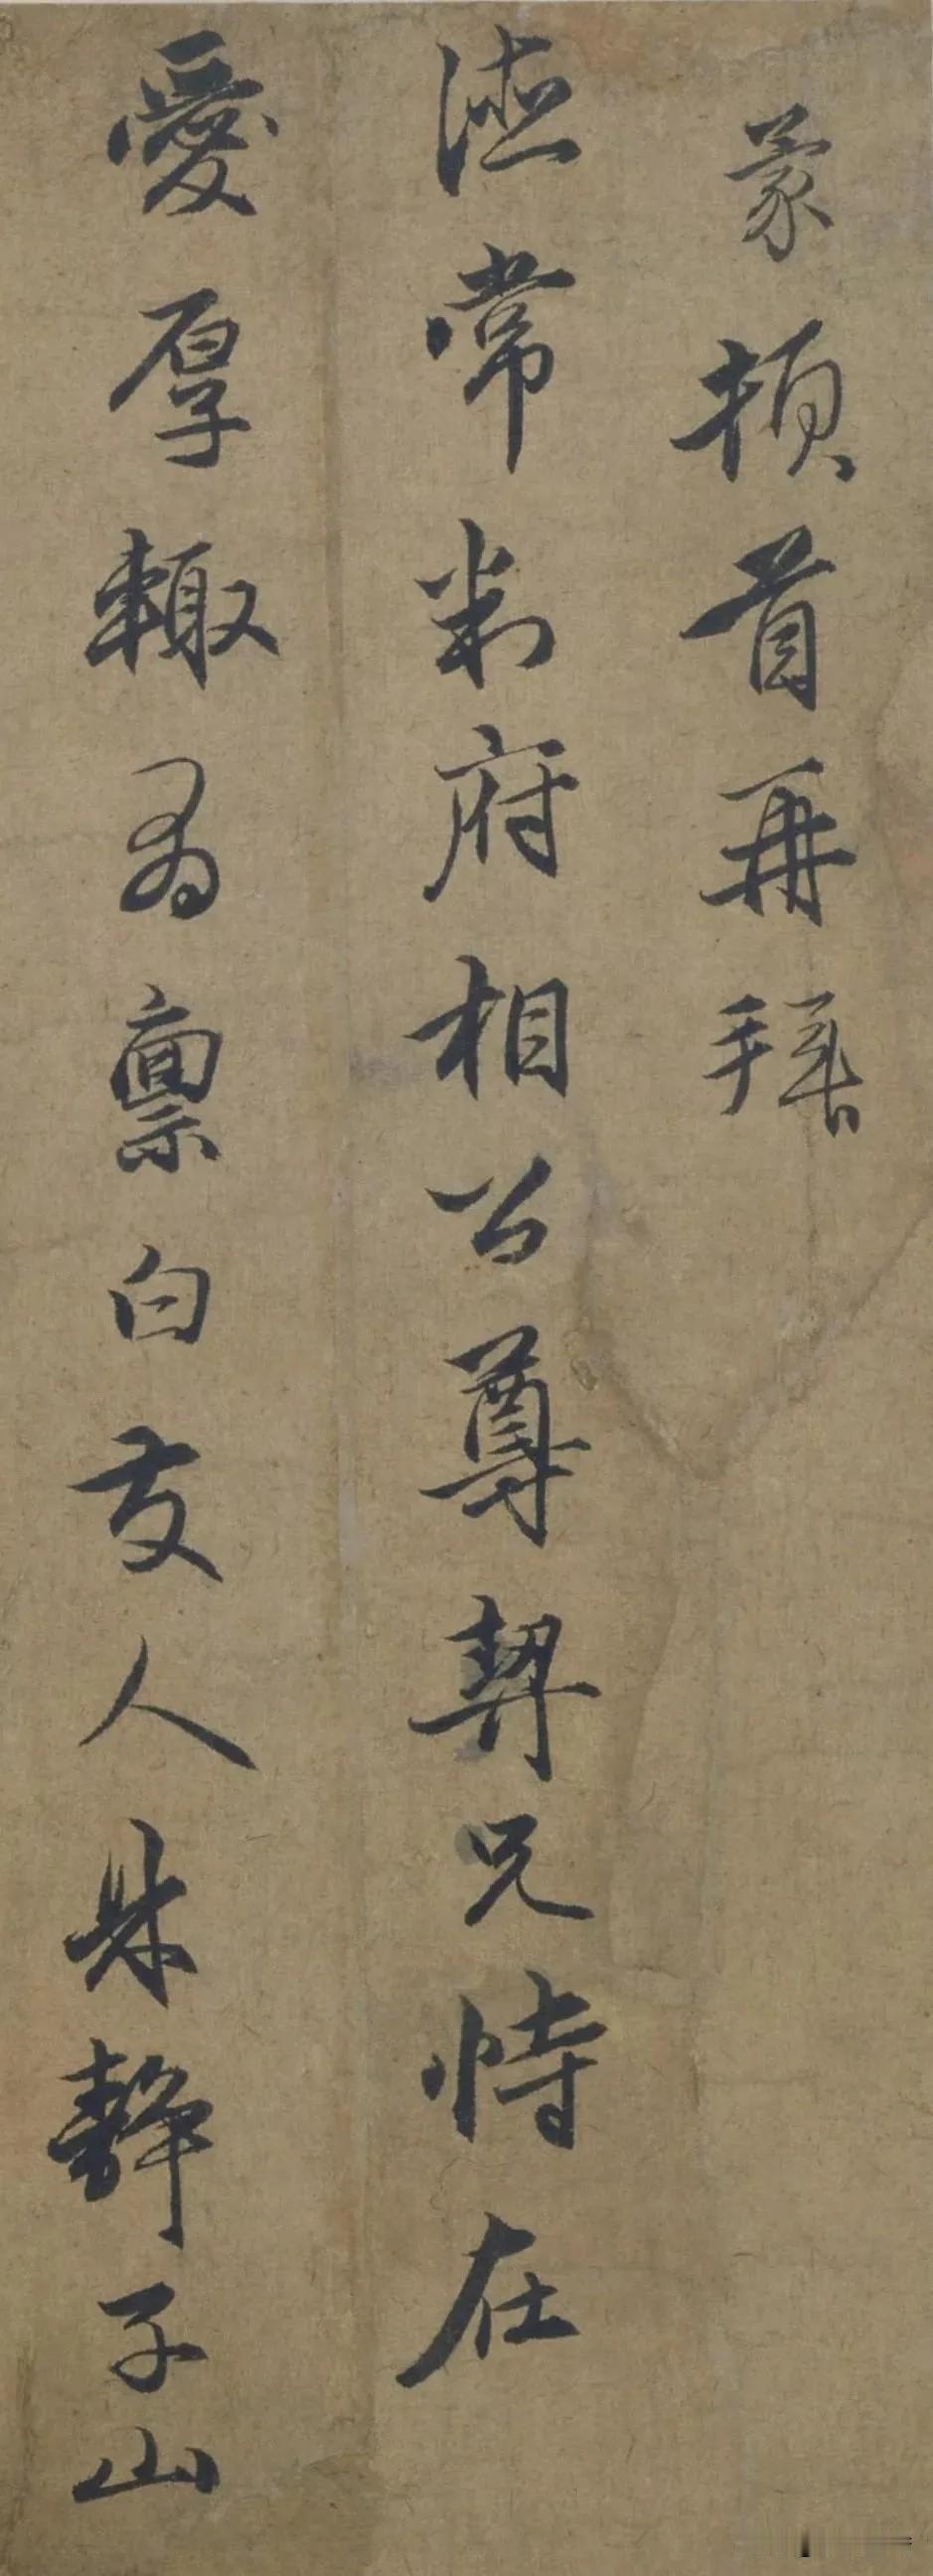 蒙頓首再拜
德常判府相公尊契兄恃在
愛厚輒為稟白友人林靜子山